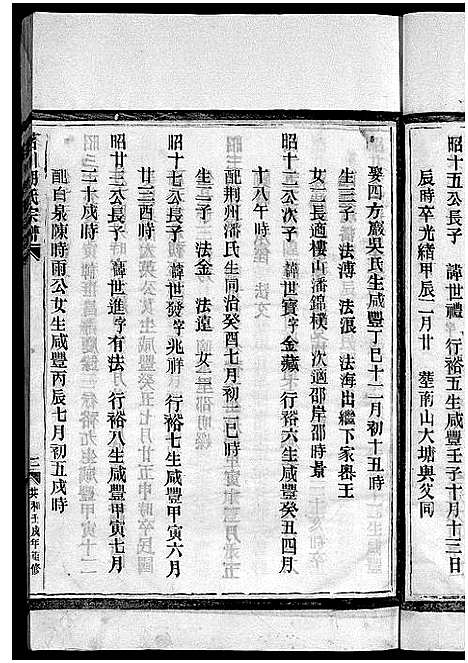 昭十五公長子 諱世禮 行裕五生咸豐壬子十月十三日
辰時卒光緒甲辰二月廿 塟南山大塘與父同
娶四方巖吳氏生咸豐丁巳十二月初十五時
生三子 法溥 法浪 法海出繼下家嶴王
女二長適樓山潘錦樸 次適邵岸邵時景
昭十二公次子 諱世寶字金藏 行裕六生咸豐癸丑四月
十八午時
配荆州潘氏生同治癸酉七月初二巳時
生二子 法金 法遠 女二至邵明
昭十七公長子 諱世發字兆祥 行裕七生咸豐甲寅六月
廿三酉時
昭廿三公長子 諱世進字有法 行裕八生咸豐甲寅七月
二十戌時
配白泉陳時雨公女生咸豐丙辰七月初五戌時
氏宗譜
三
共和壬戌年重修